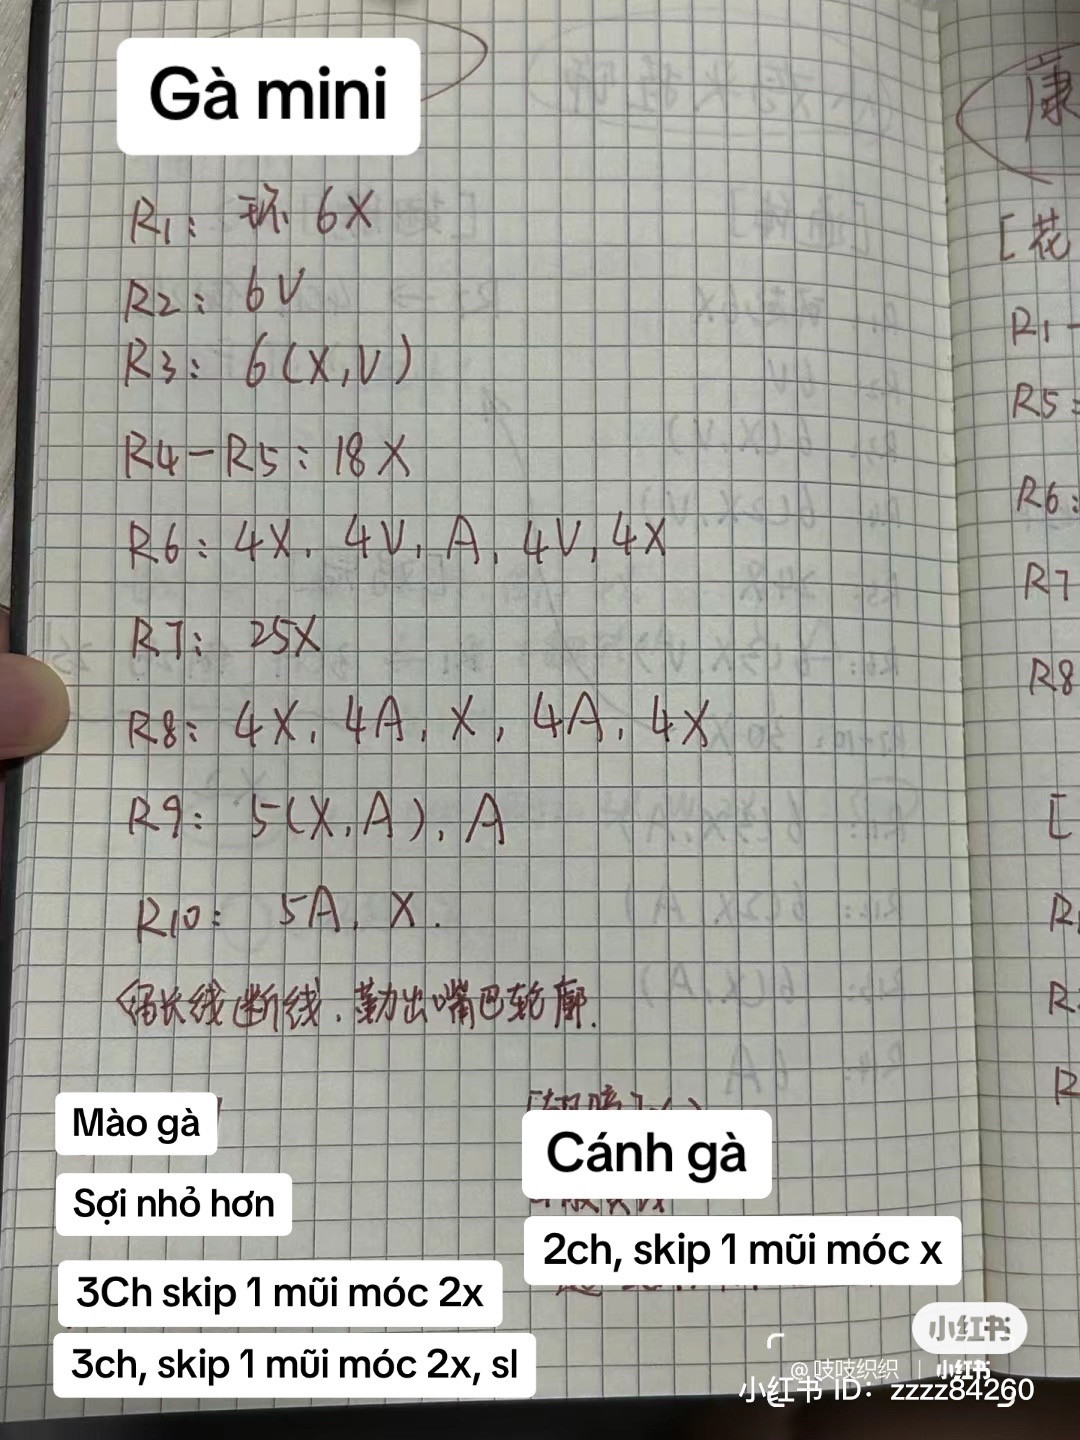 Gà mini
R1: 环 6X
R2: 6V
R3: 6(X,V)
R4-R5: 18X
R6: 4X, 4V, A, 4V, 4X
R7: 25X
R8: 4X, 4A, X, 4A, 4X
R9: 5(X,A), A
R10: 5A, X.
留长线断线,勒出嘴巴轮廓.
Mào gà
Sợi nhỏ hơn
3Ch skip 1 mũi móc 2x
3ch, skip 1 mũi móc 2x, sl
Cánh gà
2ch, skip 1 mũi móc x
康
[花
R1-
R5:
R6:
R7
R8
[
R
R
R
小红书
@吱吱织织 | 小红书
小红书 ID: zzzz84260